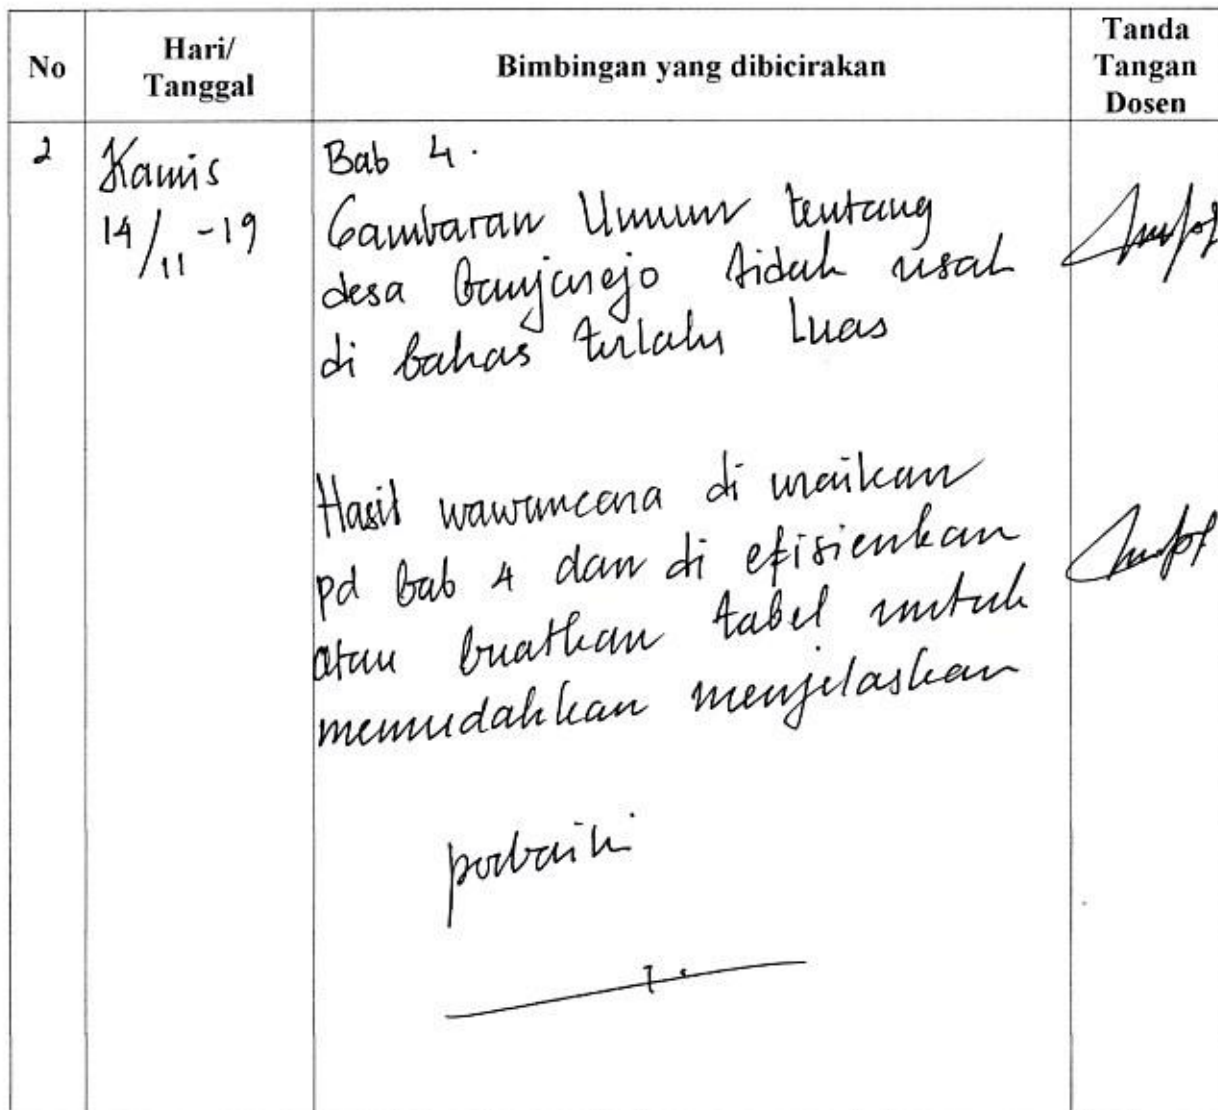 No
Hari/
Tanggal
Bimbingan yang dibicirakan
Tanda
Tangan
Dosen
2
Kamis
14/11-19
Bab 4.
Gambaran Umum tentang
desa Banjarejo tidak usah
di bahas terlalu luas
Hasil wawancara di uraikan
pd bab 4 dan di efisienkan
atau buatkan tabel untuk
memudahkan menjelaskan
perbaiki